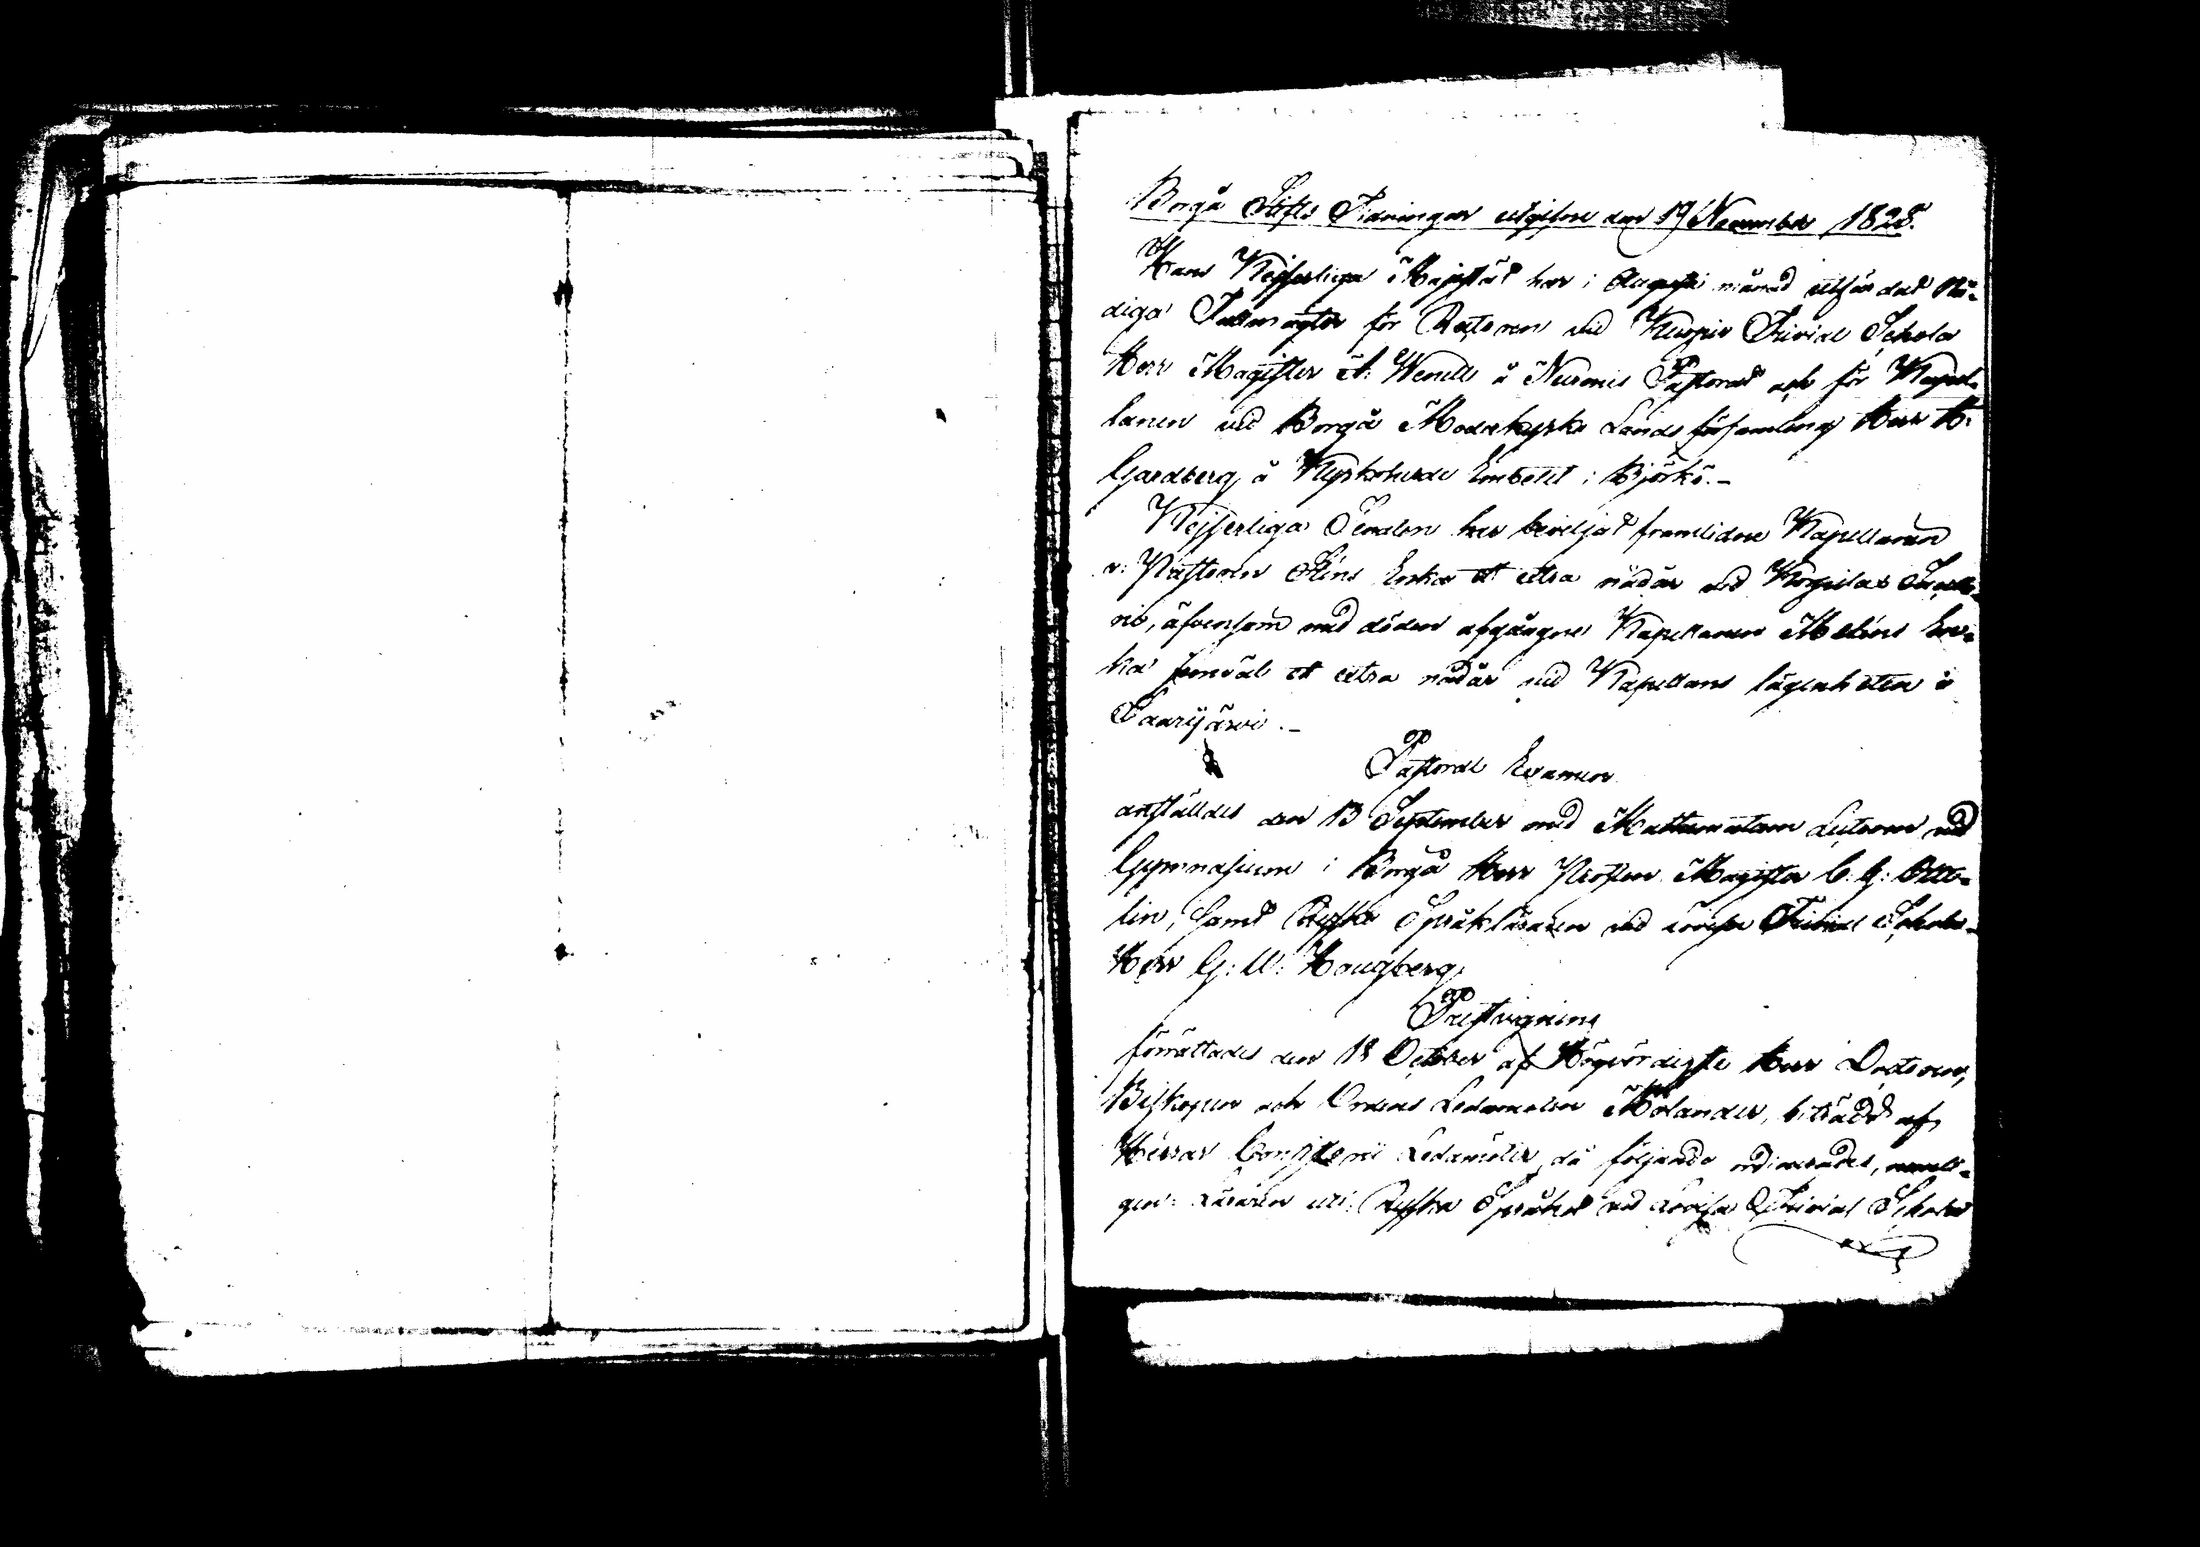 Borgå Stifts Tidningar utgifne den 19 November 1828.
Hans Kejserliga Majestät har i Augusti månad utfärdat Nå-
diga Fullmagter för Rectoren vid Kuopio Trivial Schola
Herr Magister A: Wenell å Nurmis Pastorat och för Kapel-
lanen vid Borgå Moderkyrko Landsförsamling Herr H:
Gardberg å Kyrkoherde Embetet i Björkö.-
Kejserliga Senaten har beviljat framlidne Kapellanen
v: Pastoren Enka ett extra nådår vid
ni, äfvensom med döden afgångne Kapellanen Melins En-
ka jemväl ett extra nådår vid Kapellans lägenheten i
Saarijärvi.-
Pastoral Examen
anställdes den 13 September med Mathematum Lectoren vid
Gymnasium i Borgå Herr Prosten Magister C. G: Otte-
lin, samt Ryska Språkläraren vid Lovisa Trivial Schola
Herr G: W: Hougberg.
Prestvigning
förrättades den 18 October af Högvördigste Herr Doctoren,
Biskopen och Ordens Ledamoten Molander, biträdd af
Herrar Consistorii Ledamöter, då följande ordinerades, nemli-
gen: Läraren uti Ryska Språket vid Lovisa Trivial Schola